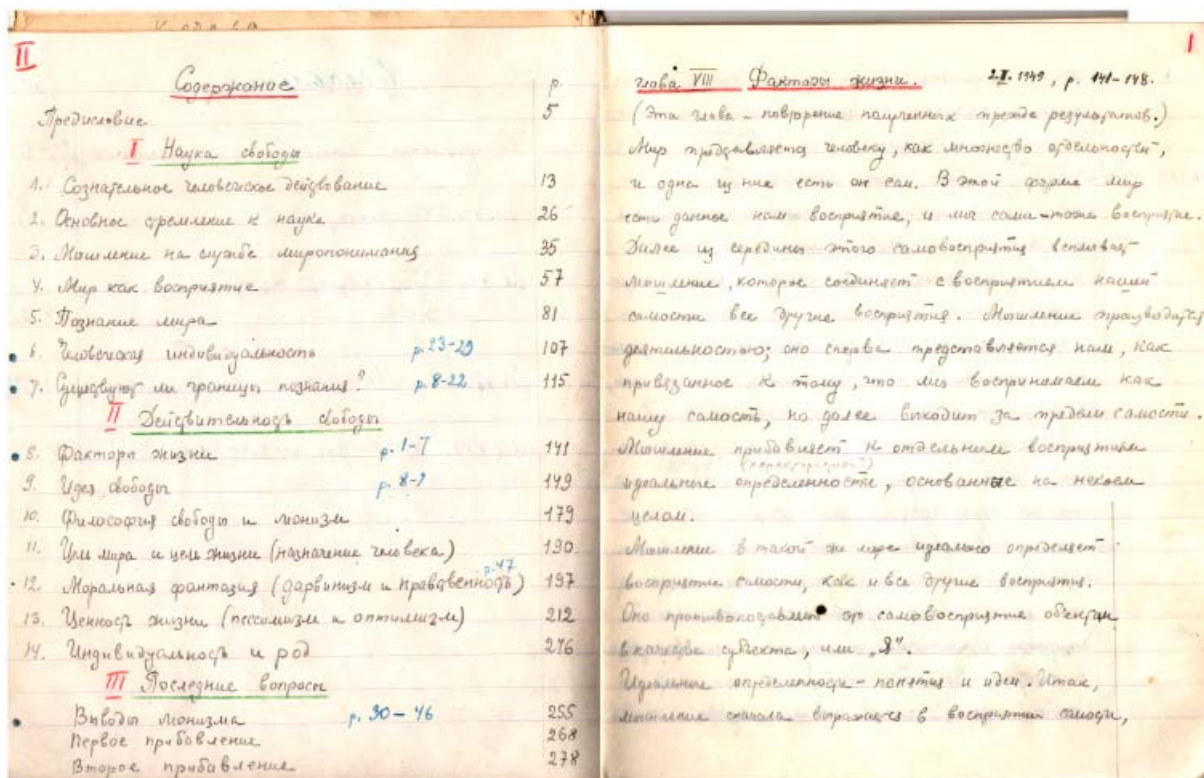 II
Содержание
р.
Предисловие 5
I Наука свободы
1. Сознательное человеческое действование 13
2. Основное стремление к науке 26
3. Мышление на службе миропонимания 35
4. Мир как восприятие 57
5. Познание мира 81
6. Человеческая индивидуальность р. 23-29 107
7. Существуют ли границы познания? р. 8-22 115
II Действительность свободы
8. Факторы жизни р. 1-7 141
9. Идея свободы р. 8-? 149
10. Философия свободы и монизм 179
11. Цель мира и цель жизни (назначение человека) 190
р. 47
12. Моральная фантазия (дарвинизм и нравственность) 197
13. Ценность жизни (пессимизм и оптимизм) 212
14. Индивидуальность и род 246
III Последние вопросы
Выводы монизма р. 30-46 255
Первое прибавление 268
Второе прибавление 278
1
глава VIII Факторы жизни. 1949, р. 141-148.
(Эта глава - повторение полученных прежде результатов.)
Мир представляется человеку, как множество отдельностей,
и одна из них есть он сам. В этой форме мир
есть данное нам восприятие, и мы сами - тоже восприятие.
Далее из середины этого самовосприятия всплывает
мышление, которое соединяет с восприятием нашей
самости все другие восприятия. Мышление производится
деятельностью; оно сперва представляется нам, как
привязанное к тому, что мы воспринимаем как
нашу самость, но далее выходит за пределы самости.
Мышление прибавляет к отдельным восприятиям
идеальные определенности, основанные на некоем
целом.
Мышление в такой же мере идеально определяет
восприятие самости, как и все другие восприятия.
Оно противопоставляет это самовосприятие объектам
в качестве субъекта, или „Я".
Идеальные определенности - понятия и идеи. Итак,
мышление сначала выражается в восприятии самости,